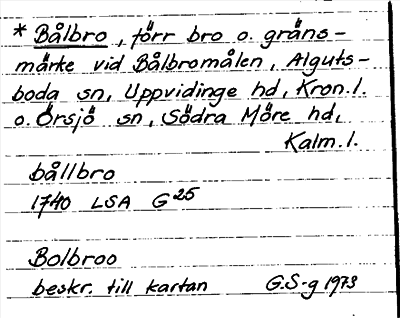 * Bålbro, förr bro o. gräns-
märke vid Bålbromålen, Alguts-
boda sn, Uppvidinge hd, Kron.l.
o. Örsjö sn, Södra Möre hd,
Kalm.l.
bållbro
1740 LSA G25
Bolbroo
beskr. till kartan G.S-g 1973